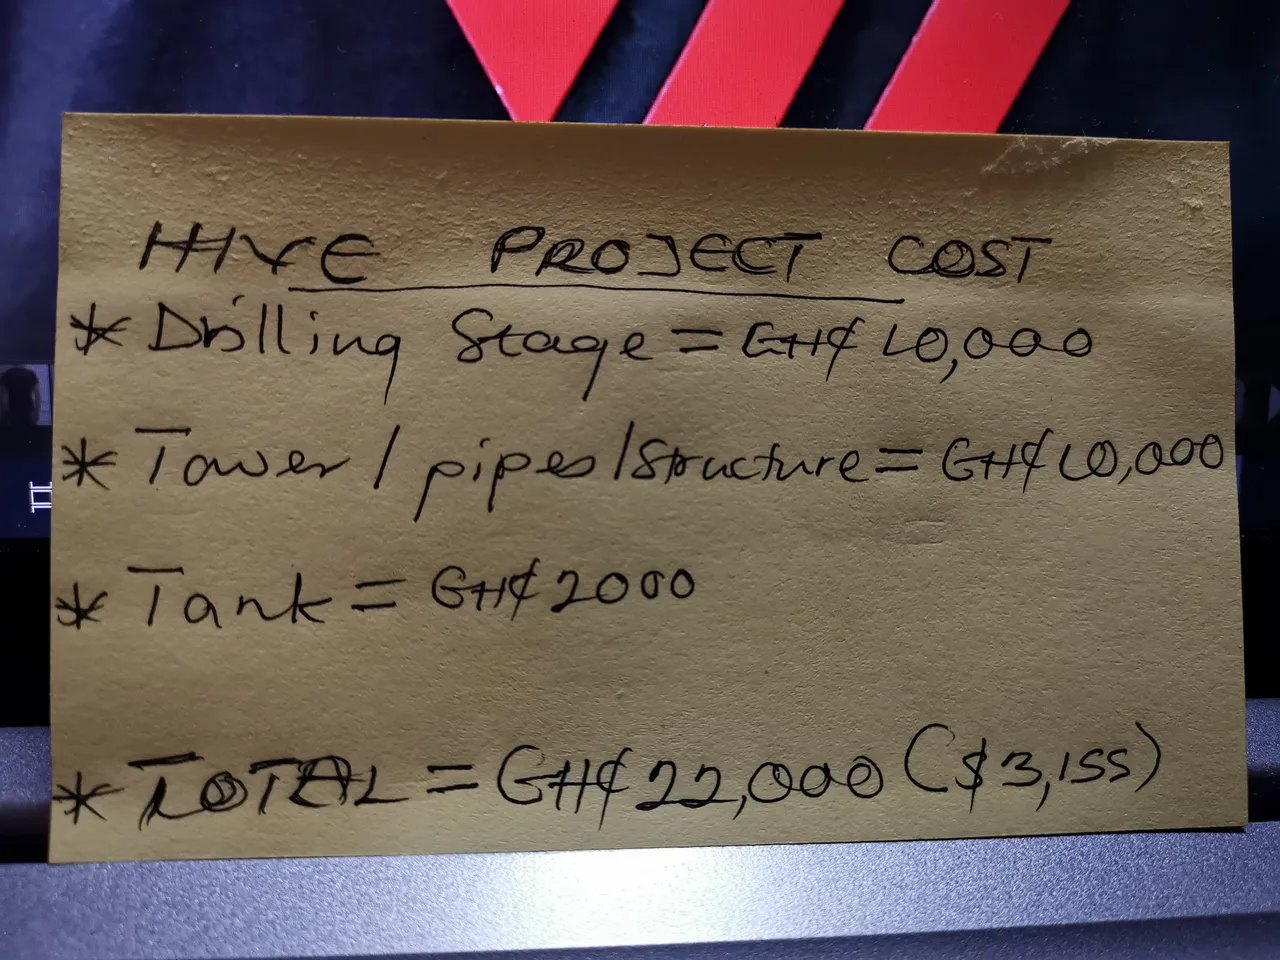 HIVE PROJECT COST
* Drilling Stage = GH₵ 10,000
* Tower / pipes / Structure = GH₵ 10,000
* Tank = GH₵ 2000
* TOTAL = GH₵ 22,000 ($3,155)